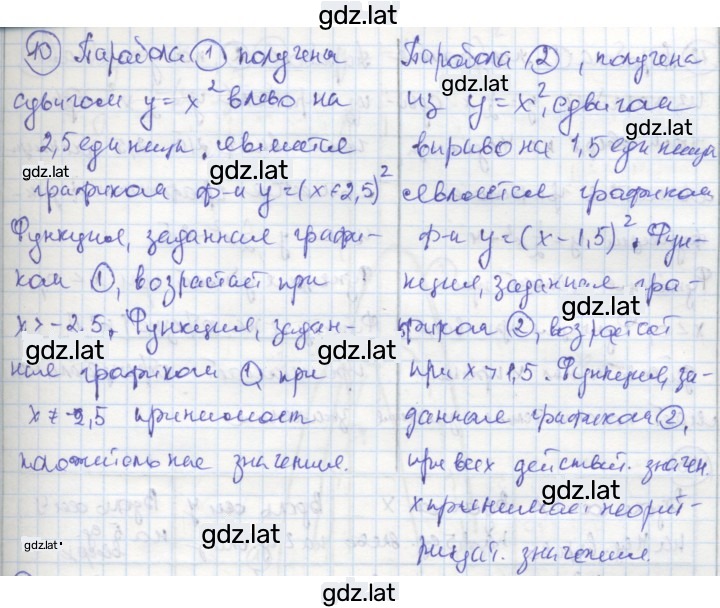 gdz.lat
10 Парабола 1 получена
сдвигом y = x² влево на
2,5 единицы, является
графиком ф-и y = (x + 2,5)²
Функция, заданная графи-
ком 1, возрастает при
x > -2.5. Функция, задан-
ная графиком 1 при
x ≠ -2,5 принимает
положительные значения.
Парабола 2, получена
из y = x², сдвигом
вправо на 1,5 единицы
является графиком
ф-и y = (x - 1,5)². Фун-
кция, заданная гра-
фиком 2, возрастает
при x > 1,5. Функция, за-
данная графиком 2,
при всех действит. значен.
x принимает неотри-
цат. значения.
gdz.lat
gdz.lat
gdz.lat
gdz.lat
gdz.lat
gdz.lat
gdz.lat
gdz.lat
gdz.lat
gdz.lat
gdz.lat
gdz.lat
gdz.lat